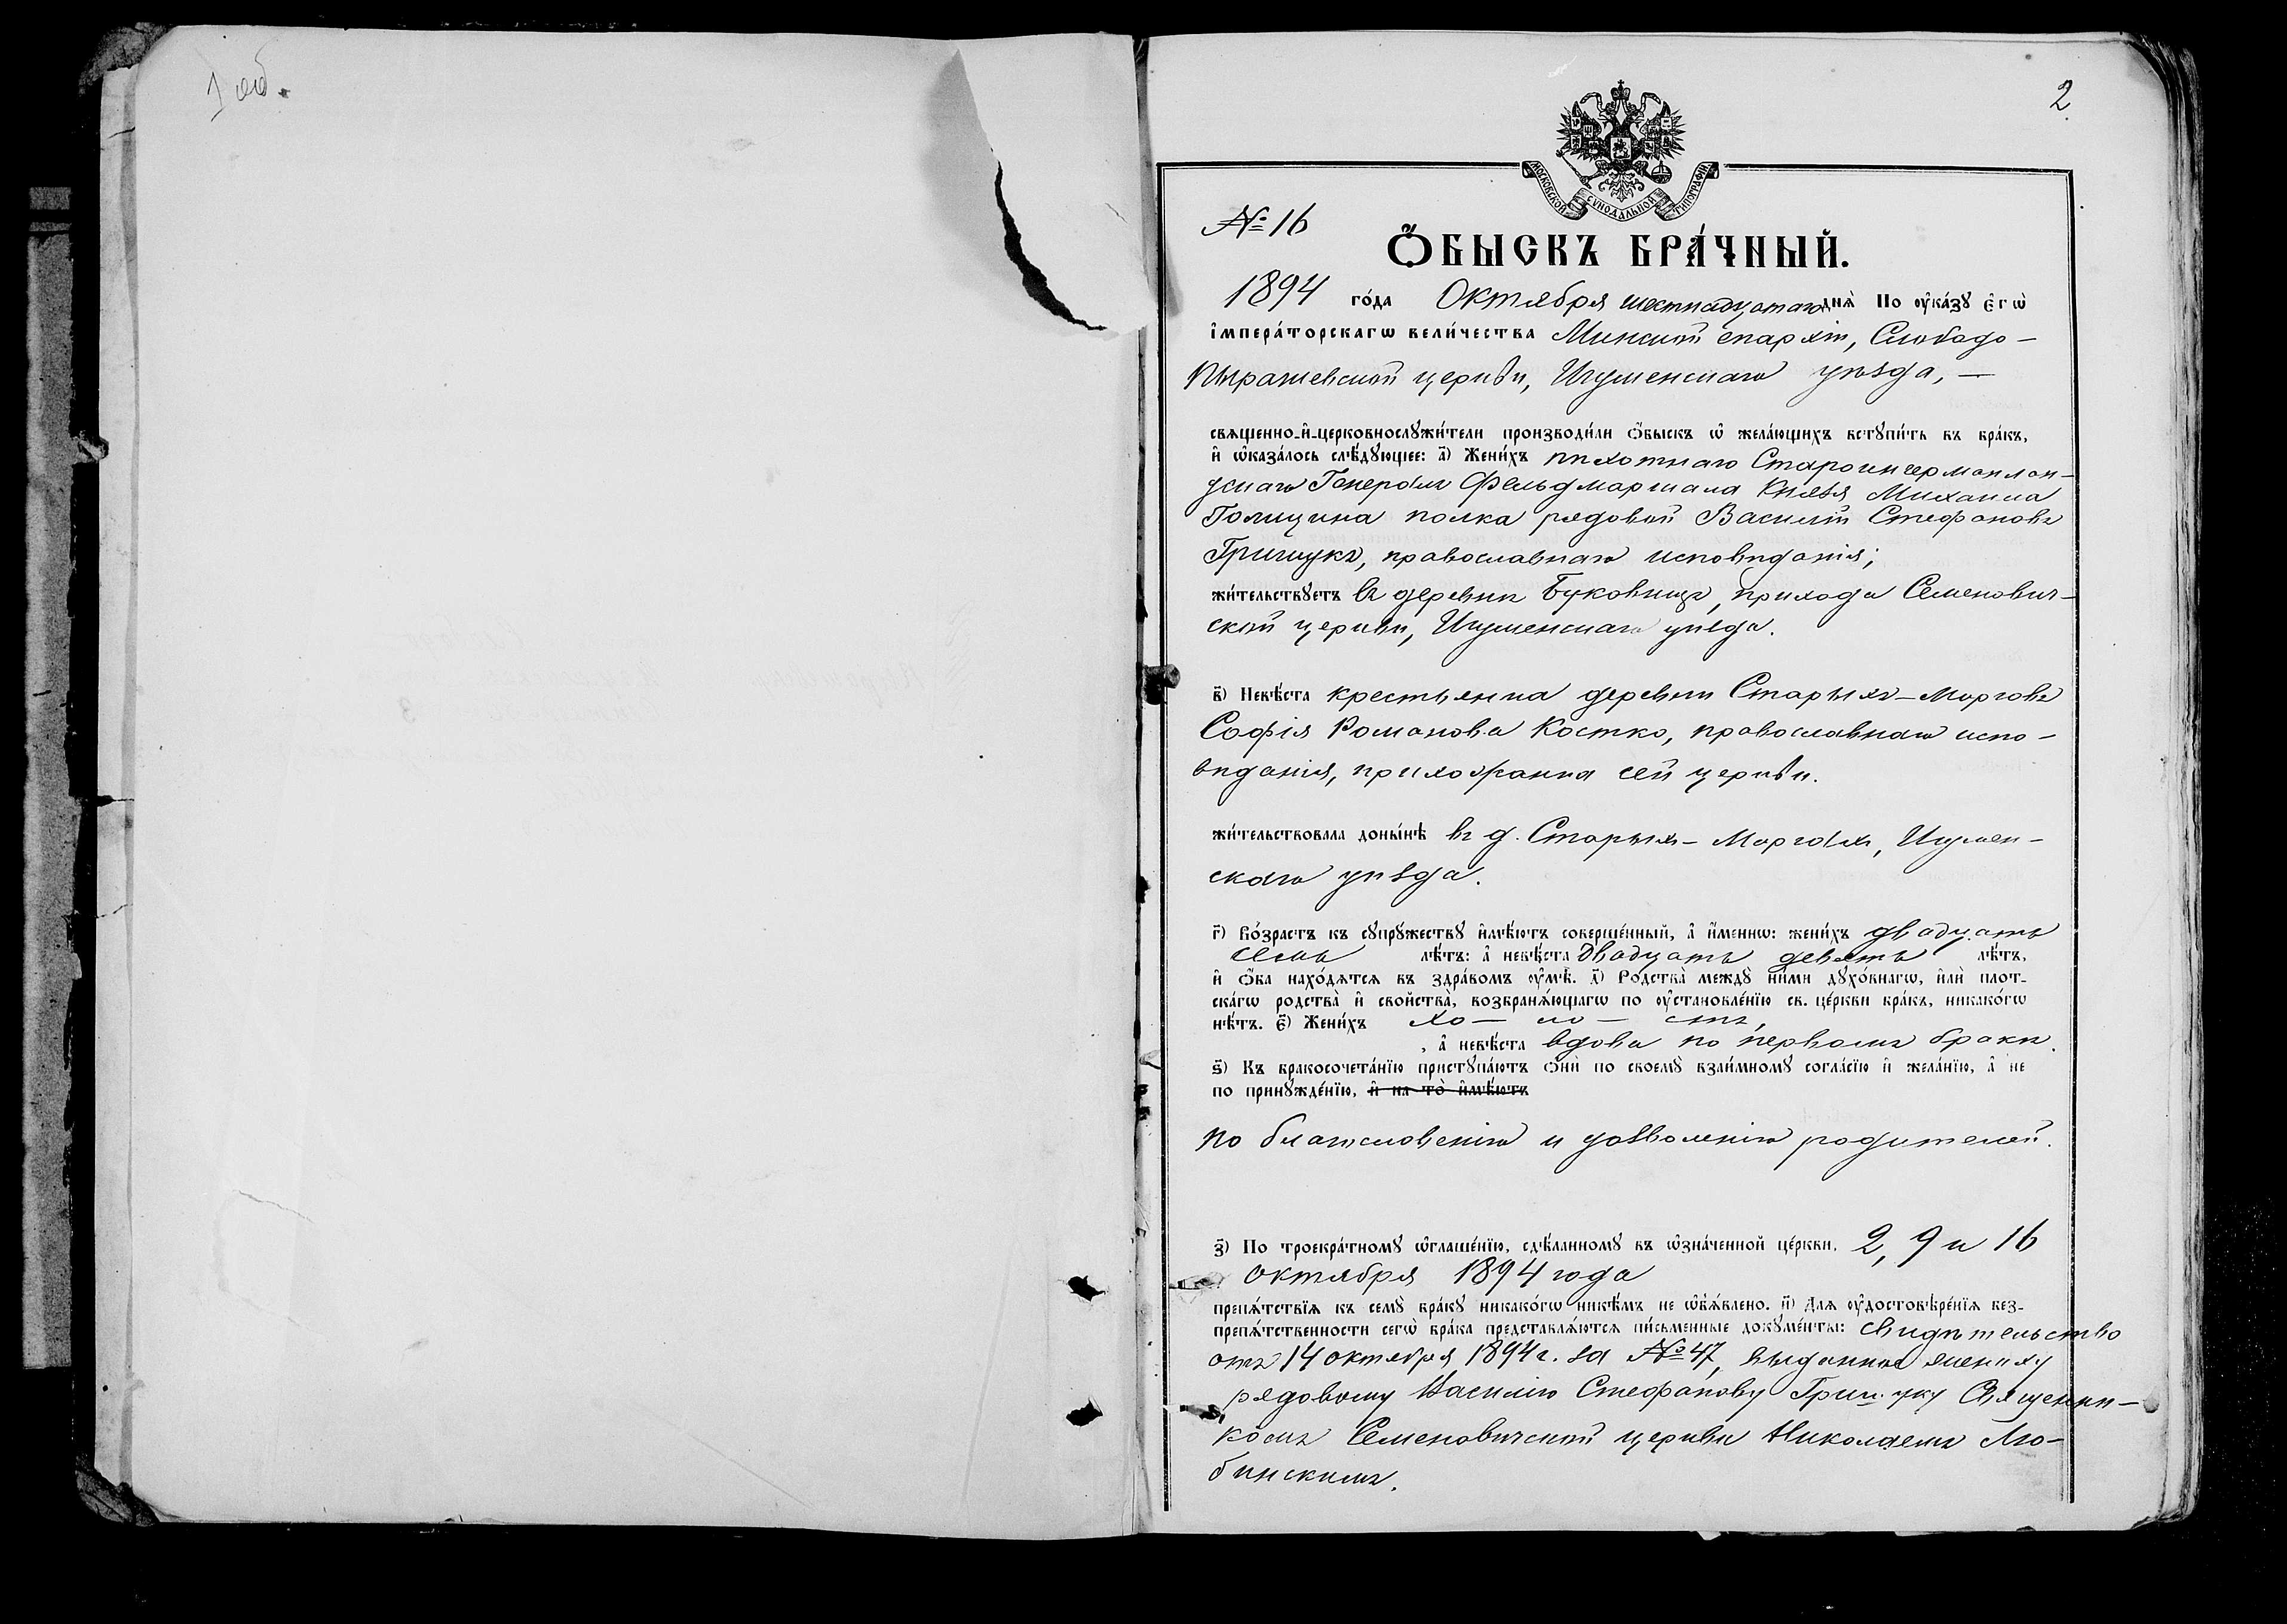 1 об.
2
МОСКОВСКОЙ СѴНОДАЛЬНОЙ ТИПОГРАФІИ
№ 16
Ѻ҆БЫСКЪ БРА́ЧНЫЙ.
1894 го́да Октября шестнадцатаго днѧ̀ По ᲂу҆ка́зꙋ є҆гѡ̀
і҆мпера́торскагѡ вели́чества Минской епархіи, Слободо-
Пырашевской церкви, Игуменскаго уѣзда, —
свѧщенно-и҆-церковнослꙋжи́тели производи́ли ѻ҆́быскъ ѡ҆ жела́ющихъ встꙋпи́ть въ бра́къ,
и҆ ѡ҆каза́лось слѣ́дꙋющее: а҃) Жени́хъ пѣхотнаго Староингерманлан-
дскаго Генералъ Фельдмаршала Князя Михаила
Голицына полка рядовой Василій Стефановъ
Грищукъ, православнаго исповѣданія;
жи́тельствꙋетъ въ деревнѣ Буковицѣ, прихода Семенович-
ской церкви, Игуменскаго уѣзда.
в҃) Невѣ́ста крестьянка деревни Старыхъ-Морговъ
Софія Романова Костко, православнаго испо-
вѣданія, прихожанка сей церкви.
жи́тельствовала доны́нѣ въ д. Старыхъ-Моргахъ, Игумен-
скаго уѣзда.
г҃) Во́зрастъ къ сꙋпрꙋ́жествꙋ и҆мѣ́ютъ соверше́нный, а҆ и҆́меннѡ: жени́хъ двадцать
семь лѣ́тъ: а҆ невѣ́ста двадцать девять лѣ́тъ,
и҆ ѻ҆́ба нахо́дѧтсѧ въ здра́вомъ ᲂу҆мѣ̀. д҃) Родства̀ междꙋ ни́ми дꙋхо́внагѡ, и҆лѝ плот-
ска́гѡ родства̀ и҆ сво́йства̀, возбранѧ́ющагѡ по ᲂу҆становле́нїю св. це́ркви бра́къ, никако́гѡ
нѣ́тъ. є҃) Жени́хъ хо — ло — стъ,
, а҆ невѣ́ста вдова по первомъ бракѣ.
ѕ҃) Къ бракосочета́нїю пристꙋпа́ютъ ѻ҆нѝ по своемꙋ̀ взаи́мномꙋ согла́сїю и҆ жела́нїю, а҆ не
по принꙋжде́нїю, и҆ на то̀ и҆мѣ́ютъ
по благословенію и дозволенію родителей.
з҃) По троекра́тномꙋ ѡ҆глаше́нїю, сдѣ́ланномꙋ въ ѡ҆зна́ченной це́ркви, 2, 9 и 16
октября 1894 года
препѧ́тствїѧ къ семꙋ̀ бра́кꙋ никако́гѡ никѣ́мъ не ѡ҆б̾ѧ́влено. и҃) Длѧ ᲂу҆достовѣре́нїѧ без-
препѧ́тственности сегѡ̀ бра́ка представлѧ́ютсѧ пи́сьменные докꙋме́нты: свидѣтельство
отъ 14 октября 1894 г. за № 47, выданное жениху
рядовому Василію Стефанову Грищуку Священни-
комъ Семеновичской церкви Николаемъ Лю-
бинскимъ.